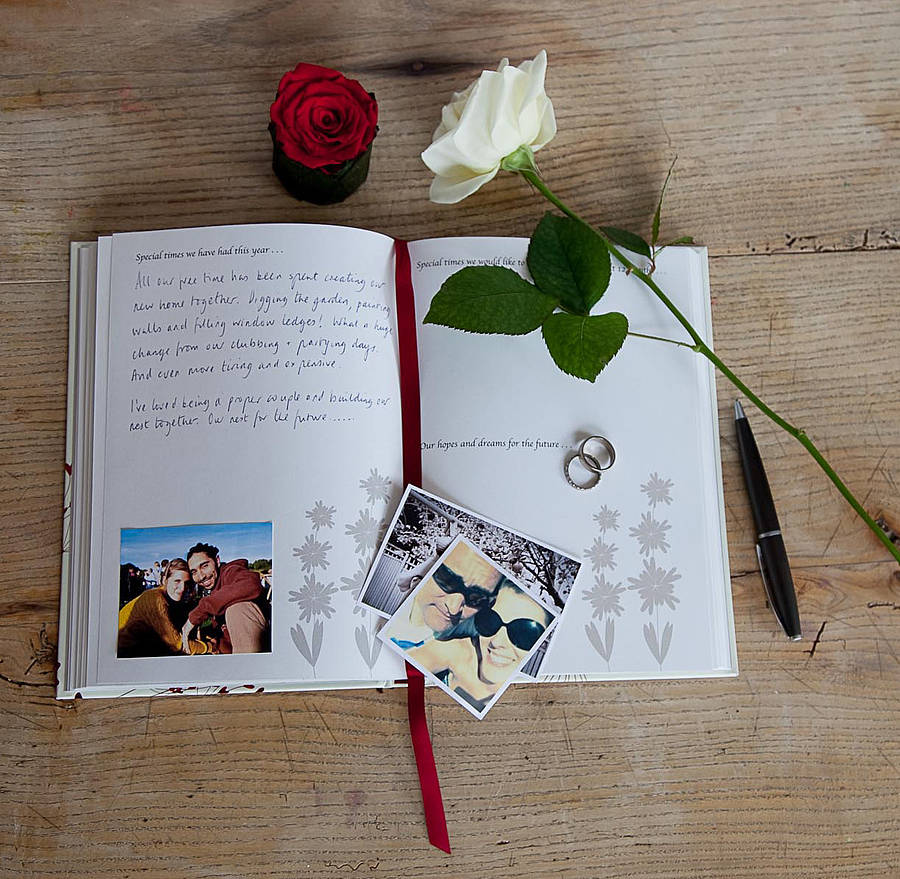 Special times we have had this year . . .
All our free time has been spent creating our
new home together. Digging the garden, painting
walls and filling window ledges! What a huge
change from our clubbing + partying days.
And even more tiring and expensive.
I've loved being a proper couple and building our
nest together. Our nest for the future ......
Special times we would like to
Our hopes and dreams for the future . . .